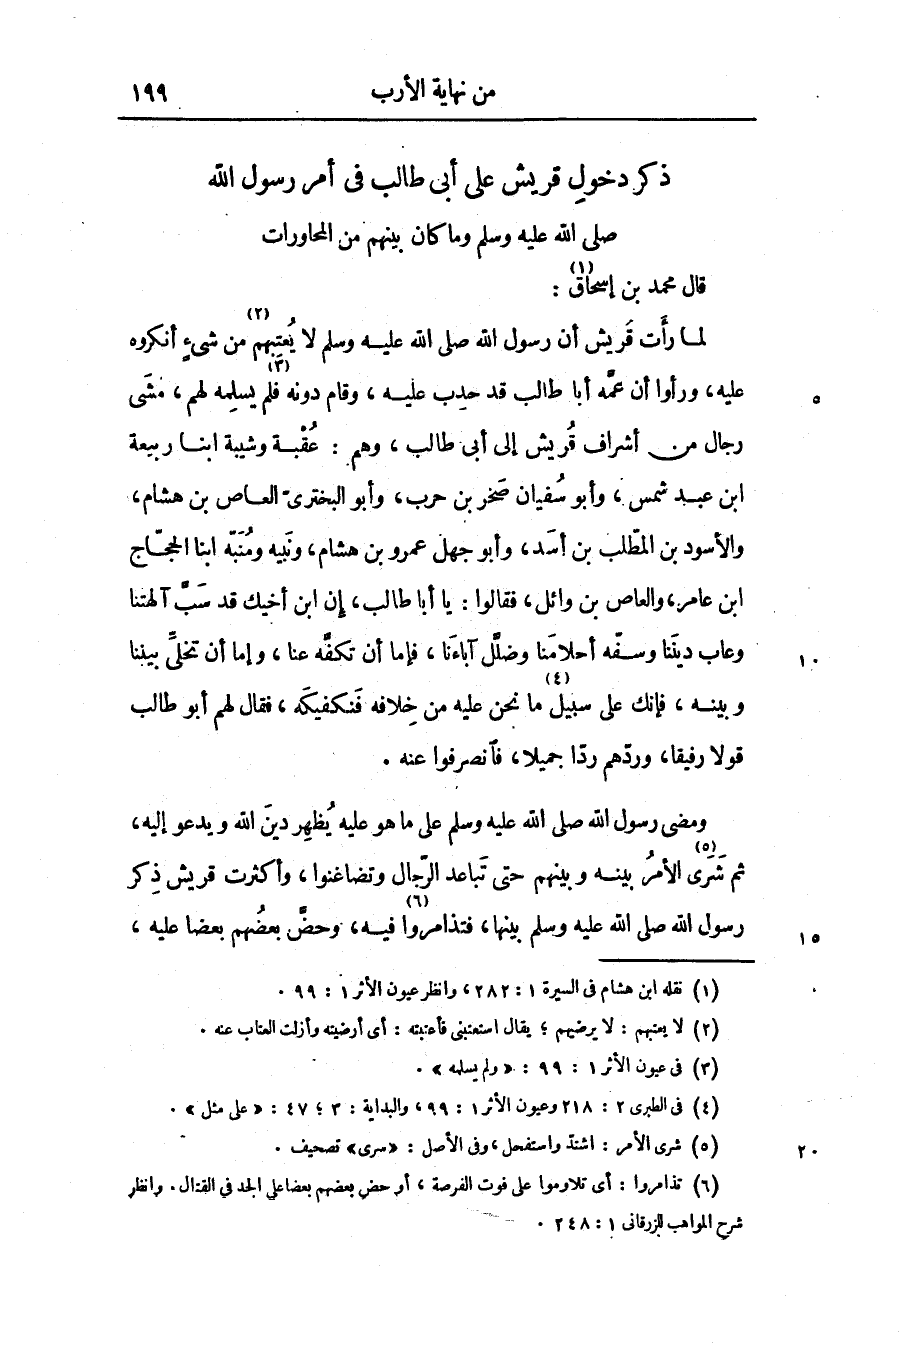 من نهاية الأرب ١٩٩
ذكر دخول قريش على أبى طالب فى أمر رسول الله
صلى الله عليه وسلم وما كان بينهم من المحاورات
قال محمد بن إسحاق (١) :
لما رأت قُريش أن رسول الله صلى الله عليه وسلم لا يُعتِبهم (٢) من شىءٍ أنكروه
عليه، ورأوا أن عمَّه أبا طالب قد حدِب عليه ، وقام دونه فلم (٣) يسلِمه لهم ، مشَى
رجال من أشراف قُريش إلى أبى طالب ، وهم : عُقْبة وشيبة ابنا ربيعة
ابن عبد شمس ، وأبو سُفيان صَخر بن حرب، وأبو البخترىّ العاص بن هشام،
والأسود بن المطّلب بن أسَد، وأبو جهل عمرو بن هشام، ونَبيه ومُنَبّه ابنا الحجّاج
ابن عامر، والعاص بن وائل، فقالوا : يا أبا طالب، إن ابن أخيك قد سَبَّ آلهتنا
وعاب دينَنا وسفّه أحلامَنا وضلَّل آباءَنا ، فإما أن تكفَّه عنا ، وإما أن تخلىَّ بيننا
وبينه ، فإنك على سبيل (٤) ما نحن عليه من خِلافه فَنكفيكَه ، فقال لهم أبو طالب
قولا رفيقا، وردّهم ردّا جميلا، فآنصرفوا عنه .
ومضى رسول الله صلى الله عليه وسلم على ما هو عليه يُظهِر دينَ الله ويدعو إليه،
ثم شَرَى (٥) الأمرُ بينه وبينهم حتى تَباعد الرّجال وتضاغنوا ، وأكثرت قريش ذِكر
رسول الله صلى الله عليه وسلم بينها، فتذامروا (٦) فيه، وحضَّ بعضُهم بعضا عليه ،
(١) نقله ابن هشام فى السيرة ١ : ٢٨٢، وانظر عيون الأثر ١ : ٩٩ .
(٢) لا يعتبهم : لا يرضيهم ؛ يقال استعتبنى فأعتبته : أى أرضيته وأزلت العتاب عنه .
(٣) فى عيون الأثر ١ : ٩٩ : « ولم يسلمه » .
(٤) فى الطبرى ٢ : ٢١٨ وعيون الأثر ١ : ٩٩، والبداية : ٣ ؛ ٤٧ : « على مثل » .
(٥) شرى الأمر : اشتدّ واستفحل، وفى الأصل : «سرى» تصحيف .
(٦) تذامروا : أى تلاوموا على فوت الفرصة ، أو حض بعضهم بعضا على الجد فى القتال. وانظر
شرح المواهب للزرقانى ١ : ٢٤٨ .
٥
١٠
١٥
٢٠